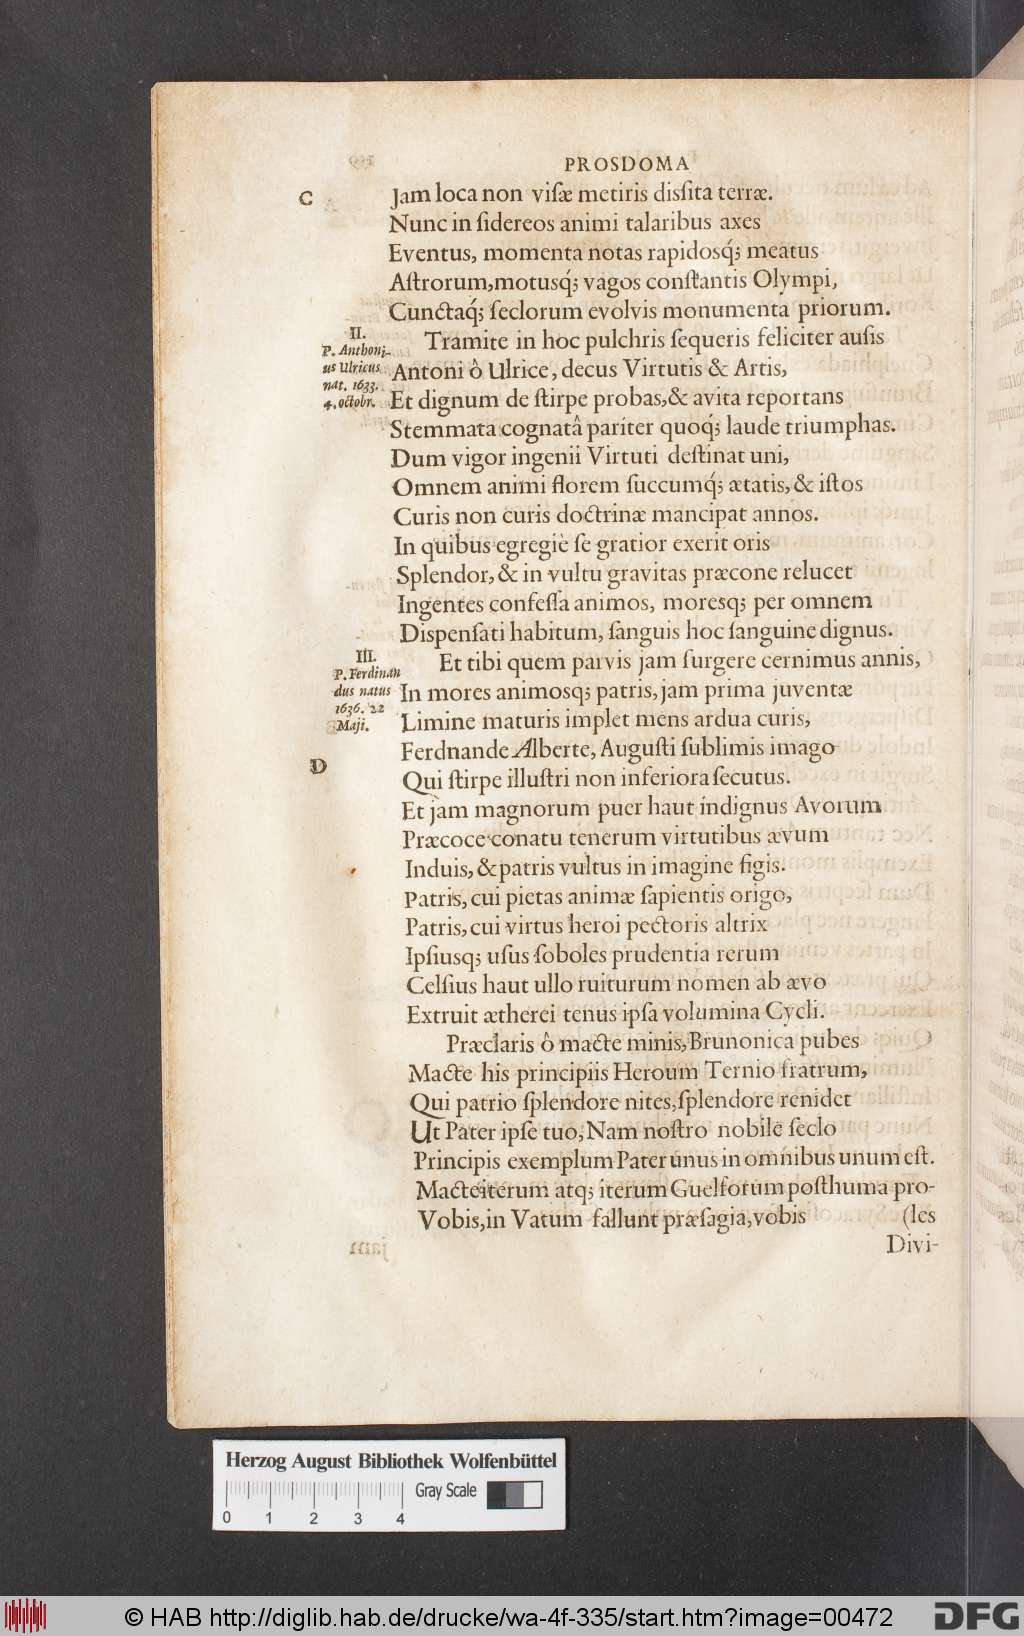 PROSDOMA
C
Jam loca non viſæ metiris disſita terræ.
Nunc in ſidereos animi talaribus axes
Eventus, momenta notas rapidosq́; meatus
Aſtrorum, motusq́; vagos conſtantis Olympi,
Cunctaq́; ſeclorum evolvis monumenta priorum.
II.
P. Anthoni-
us Ulricus
nat. 1633.
4. octobr.
Tramite in hoc pulchris ſequeris feliciter auſis
Antoni ô Ulrice, decus Virtutis & Artis,
Et dignum de ſtirpe probas, & avita reportans
Stemmata cognatâ pariter quoq́; laude triumphas.
Dum vigor ingenii Virtuti deſtinat uni,
Omnem animi florem ſuccumq́; ætatis, & iſtos
Curis non curis doctrinæ mancipat annos.
In quibus egregiè ſe gratior exerit oris
Splendor, & in vultu gravitas præcone relucet
Ingentes confeſſa animos, moresq; per omnem
Dispenſati habitum, ſanguis hoc ſanguine dignus.
III.
P. Ferdinan
dus natus
1636. 22
Maji.
Et tibi quem parvis jam ſurgere cernimus annis,
In mores animosq; patris, jam prima juventæ
Limine maturis implet mens ardua curis,
Ferdnande Alberte, Auguſti ſublimis imago
D
Qui ſtirpe illuſtri non inferiora ſecutus.
Et jam magnorum puer haut indignus Avorum
Præcoce conatu tenerum virtutibus ævum
Induis, & patris vultus in imagine figis.
Patris, cui pietas animæ ſapientis origo,
Patris, cui virtus heroi pectoris altrix
Ipſiusq; uſus ſoboles prudentia rerum
Celſius haut ullo ruiturum nomen ab ævo
Extruit ætherei tenus ipſa volumina Cycli.
Præclaris ô macte minis, Brunonica pubes
Macte his principiis Heroum Ternio fratrum,
Qui patrio ſplendore nites, ſplendore renidet
Ut Pater ipſe tuo, Nam noſtro nobile ſeclo
Principis exemplum Pater unus in omnibus unum eſt.
Macte iterum atq; iterum Guelforum poſthuma pro-
Vobis, in Vatum fallunt præſagia, vobis (les
Divi-
Herzog August Bibliothek Wolfenbüttel
Gray Scale
0 1 2 3 4
© HAB http://diglib.hab.de/drucke/wa-4f-335/start.htm?image=00472
DFG